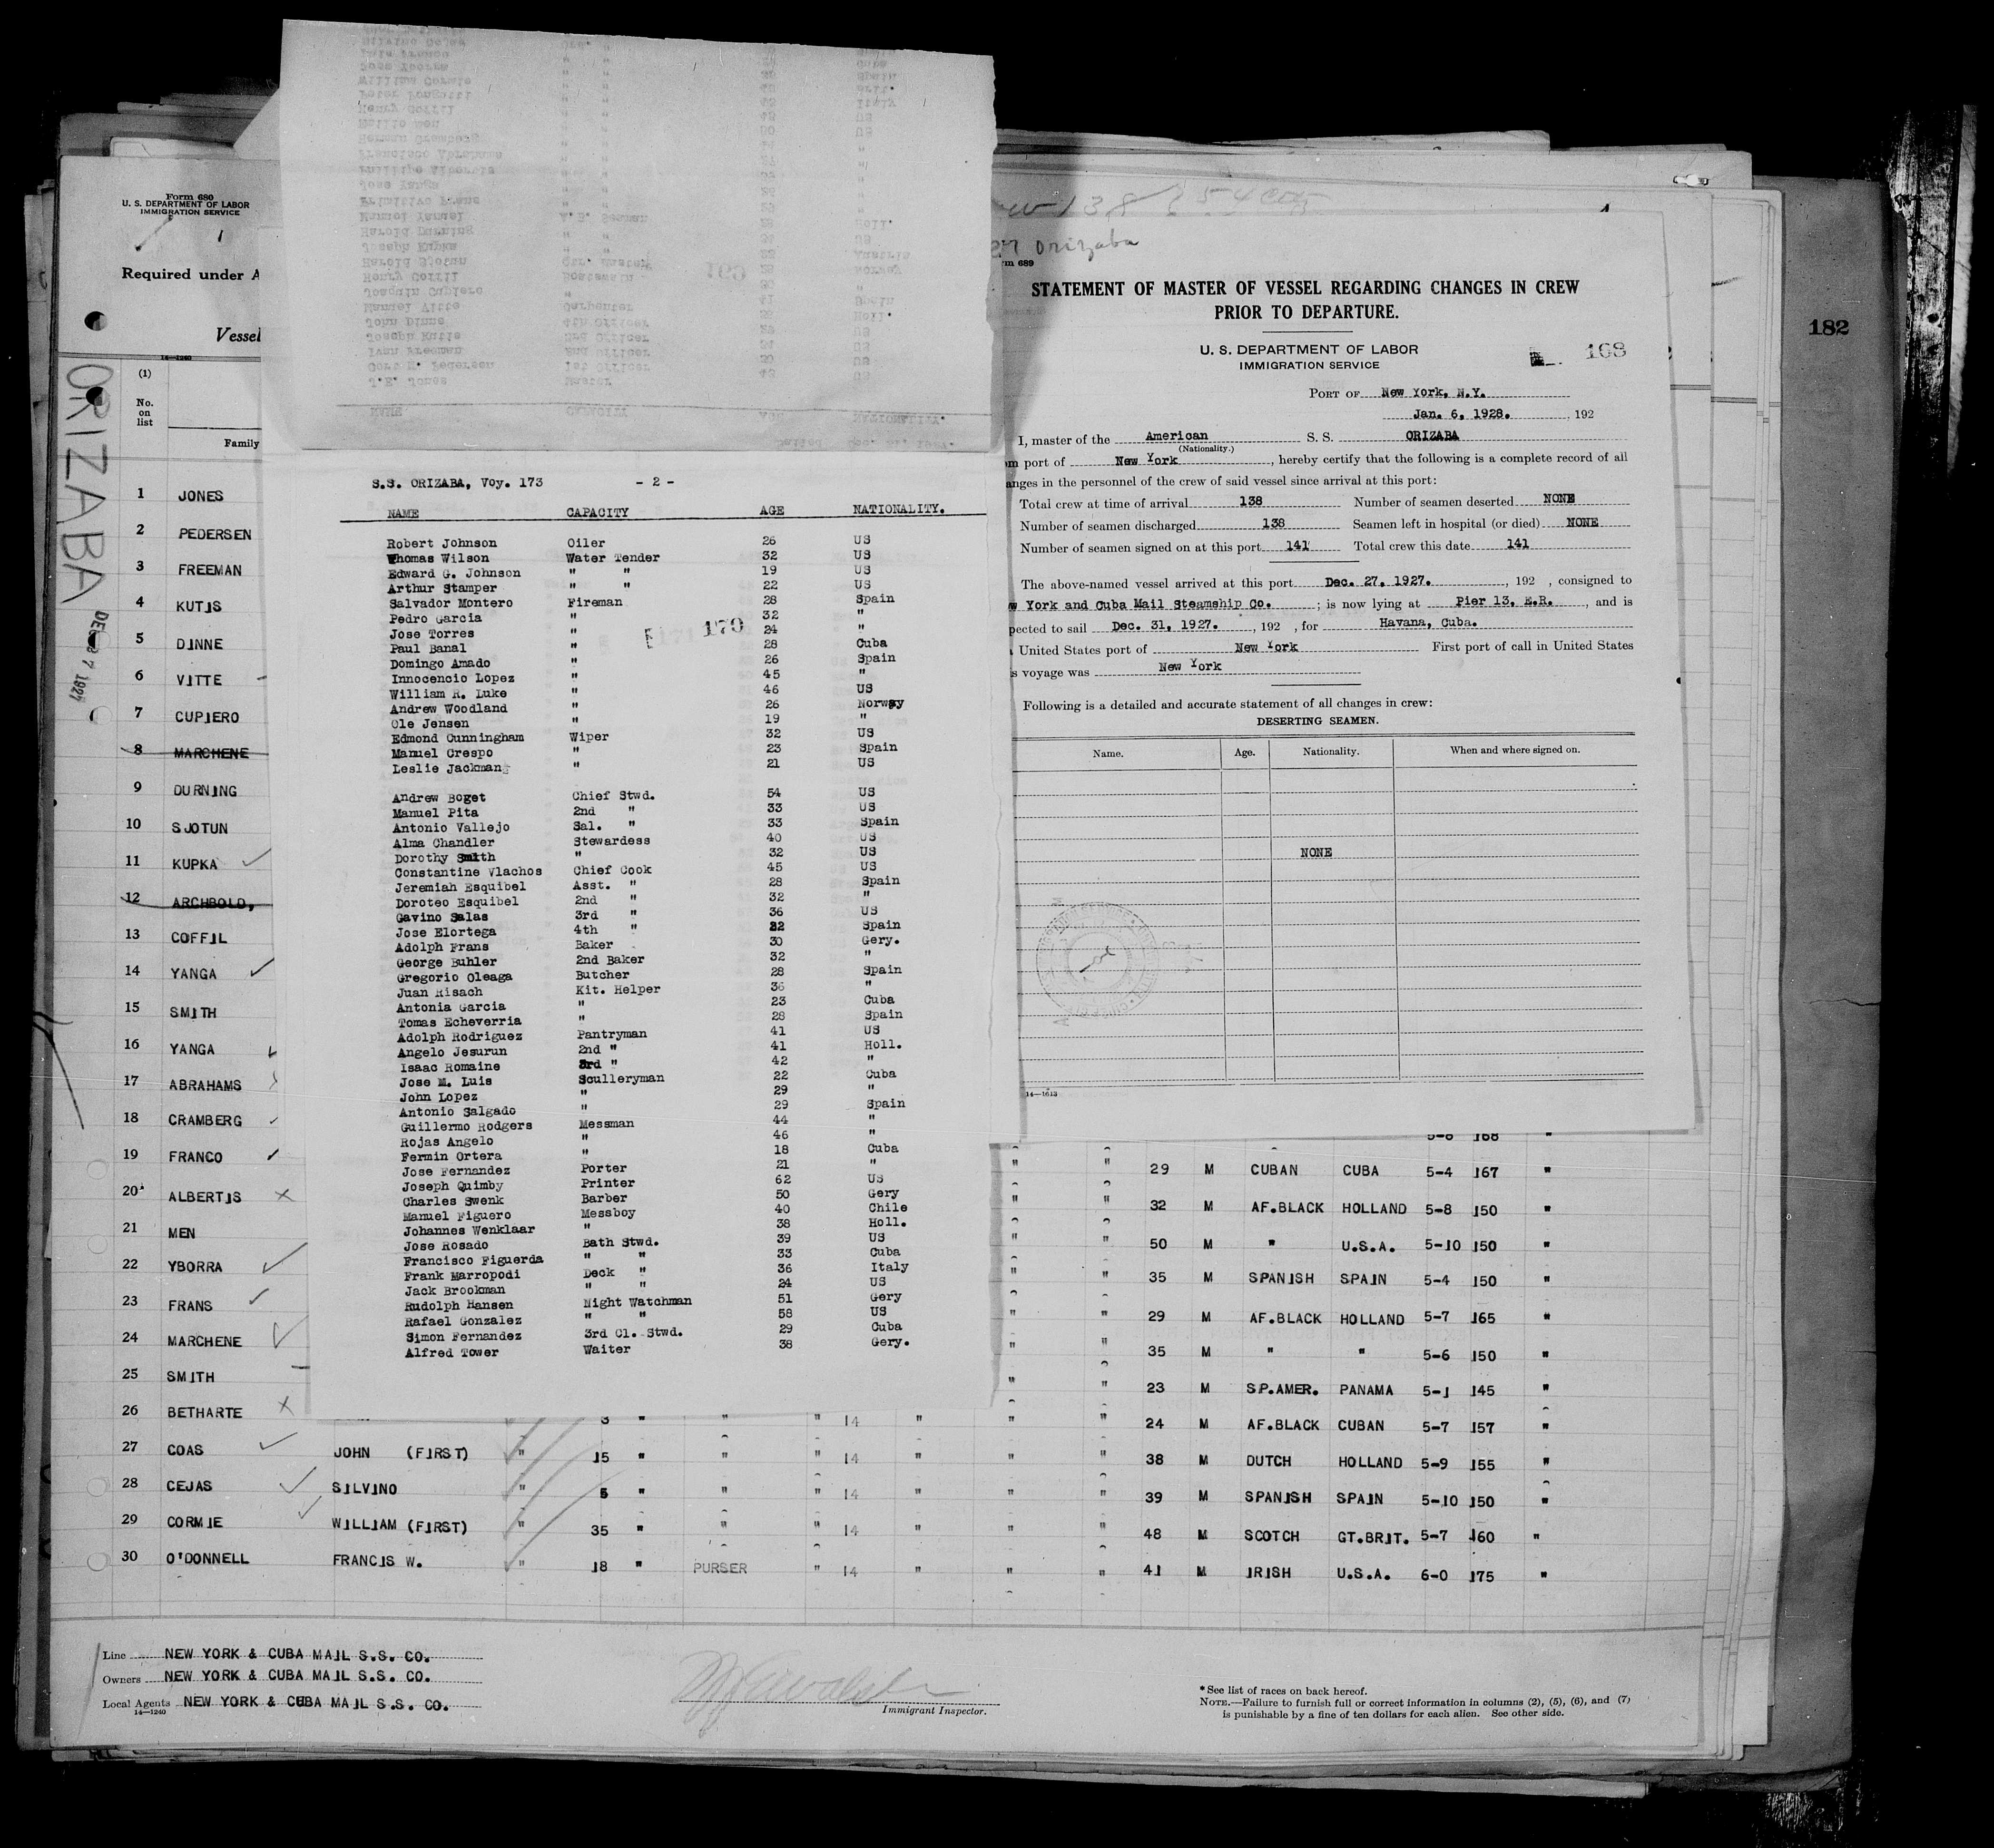 Form 680
U. S. DEPARTMENT OF LABOR
IMMIGRATION SERVICE
Required under A
Vessel
14—1240
(1)
No.
on
list
Family
ORIZABA
DEC 27 1927
1 JONES
2 PEDERSEN
3 FREEMAN
4 KUTIS
5 DINNE
6 VITTE
7 CUPIERO
8 MARCHENE
9 DURNING
10 SJOTUN
11 KUPKA
12 ARCHBOLD,
13 COFFIL
14 YANGA
15 SMITH
16 YANGA
17 ABRAHAMS
18 CRAMBERG
19 FRANCO
20 ALBERTIS
21 MEN
22 YBORRA
23 FRANS
24 MARCHENE
25 SMITH
26 BETHARTE
27 COAS
28 CEJAS
29 CORMIE
30 O'DONNELL
S.S. ORIZABA, Voy. 173 - 2 -
NAME CAPACITY AGE NATIONALITY.
Robert Johnson Oiler 26 US
Thomas Wilson Water Tender 32 US
Edward G. Johnson " " 19 US
Arthur Stamper " " 22 US
Salvador Montero Fireman 28 Spain
Pedro Garcia " 32 "
Jose Torres " 24 "
Paul Banal " 28 Cuba
Domingo Amado " 26 Spain
Innocencio Lopez " 45 "
William R. Luke " 46 US
Andrew Woodland " 26 Norway
Ole Jensen " 19 "
Edmond Cunningham Wiper 32 US
Manuel Crespo " 23 Spain
Leslie Jackman " 21 US
170
Andrew Boget Chief Stwd. 54 US
Manuel Pita 2nd " 33 US
Antonio Vallejo Sal. " 33 Spain
Alma Chandler Stewardess 40 US
Dorothy Smith " 32 US
Constantine Vlachos Chief Cook 45 US
Jeremiah Esquibel Asst. " 28 Spain
Doroteo Esquibel 2nd " 32 "
Gavino Salas 3rd " 36 US
Jose Elortega 4th " 22 Spain
Adolph Frans Baker 30 Gery.
George Buhler 2nd Baker 32 "
Gregorio Oleaga Butcher 28 Spain
Juan Risach Kit. Helper 36 "
Antonia Garcia " 23 Cuba
Tomas Echeverria " 28 Spain
Adolph Rodriguez Pantryman 41 US
Angelo Jesurun 2nd " 41 Holl.
Isaac Romaine 3rd " 42 "
Jose M. Luis Sculleryman 22 Cuba
John Lopez " 29 "
Antonio Salgado " 29 Spain
Guillermo Rodgers Messman 44 "
Rojas Angelo " 46 "
Fermin Ortera " 18 Cuba
Jose Fernandez Porter 21 "
Joseph Quimby Printer 62 US
Charles Swenk Barber 50 Gery
Manuel Figuero Messboy 40 Chile
Johannes Wenklaar " 38 Holl.
Jose Rosado Bath Stwd. 39 US
Francisco Figuerda " " 33 Cuba
Frank Marropodi Deck " 36 Italy
Jack Brookman " " 24 US
Rudolph Hansen Night Watchman 51 Gery
Rafael Gonzalez " " 58 US
Simon Fernandez 3rd Cl. Stwd. 29 Cuba
Alfred Tower Waiter 38 Gery.
138
Orizaba
rm 689
STATEMENT OF MASTER OF VESSEL REGARDING CHANGES IN CREW
PRIOR TO DEPARTURE.
U. S. DEPARTMENT OF LABOR
IMMIGRATION SERVICE
168
PORT OF New York, N.Y.
Jan. 6, 1928. , 192
I, master of the American S. S. ORIZABA
(Nationality.)
m port of New York , hereby certify that the following is a complete record of all
anges in the personnel of the crew of said vessel since arrival at this port:
Total crew at time of arrival 138 Number of seamen deserted NONE
Number of seamen discharged 138 Seamen left in hospital (or died) NONE
Number of seamen signed on at this port 141 Total crew this date 141
The above-named vessel arrived at this port Dec. 27, 1927. , 192 , consigned to
w York and Cuba Mail Steamship Co. ; is now lying at Pier 13, E.R. , and is
pected to sail Dec. 31, 1927. , 192 , for Havana, Cuba.
United States port of New York First port of call in United States
s voyage was New York
Following is a detailed and accurate statement of all changes in crew:
DESERTING SEAMEN.
Name. Age. Nationality. When and where signed on.
NONE
14—1613
182
5-6 168 "
" " 29 M CUBAN CUBA 5-4 167 "
" " 32 M AF.BLACK HOLLAND 5-8 150 "
" " 50 M " U.S.A. 5-10 150 "
" " 35 M SPANISH SPAIN 5-4 150 "
" " 29 M AF.BLACK HOLLAND 5-7 165 "
" " 35 M " " 5-6 150 "
" " 23 M SP.AMER. PANAMA 5-1 145 "
3 " " " 14 " " " 24 M AF.BLACK CUBAN 5-7 157 "
JOHN (FIRST) " 15 " " " 14 " " " 38 M DUTCH HOLLAND 5-9 155 "
SILVINO " 5 " " " 14 " " " 39 M SPANISH SPAIN 5-10 150 "
WILLIAM (FIRST) " 35 " " " 14 " " " 48 M SCOTCH GT.BRIT. 5-7 160 "
FRANCIS W. " 18 " PURSER " 14 " " " 41 M IRISH U.S.A. 6-0 175 "
Line NEW YORK & CUBA MAIL S.S. CO.
Owners NEW YORK & CUBA MAIL S.S. CO.
Local Agents NEW YORK & CUBA MAIL S.S. CO.
14—1240
Immigrant Inspector.
*See list of races on back hereof.
NOTE.—Failure to furnish full or correct information in columns (2), (5), (6), and (7)
is punishable by a fine of ten dollars for each alien. See other side.